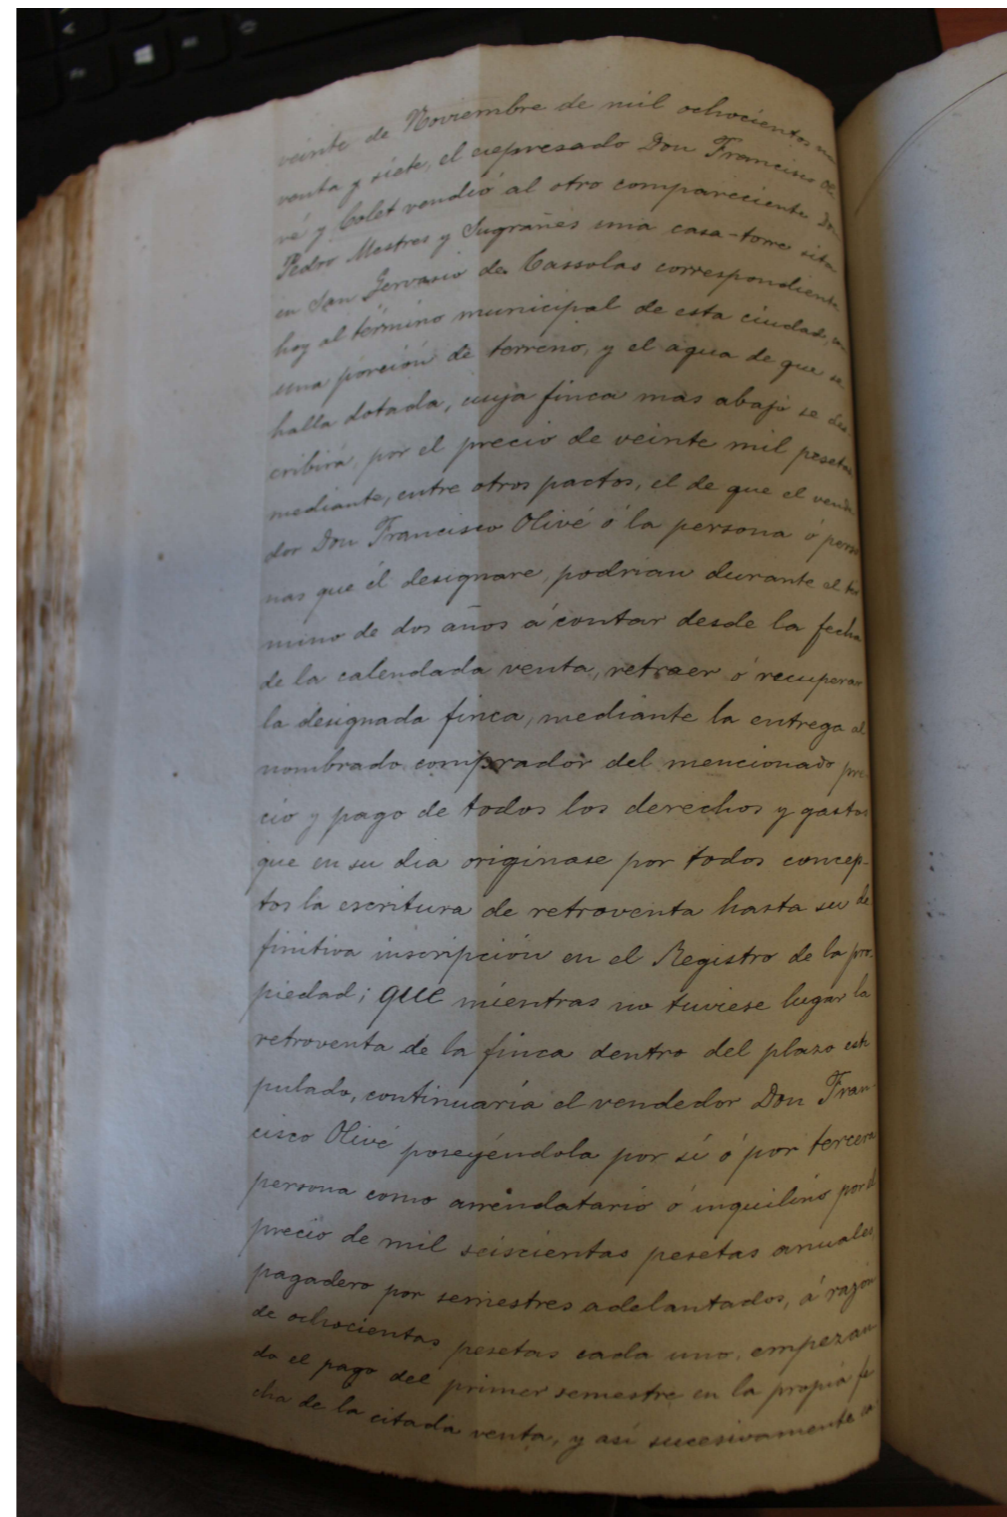 veinte de Noviembre de mil ochocientos no
venta y siete, el expresado Don Francisco Oli
vé y Colet vendió al otro compareciente Don
Pedro Mestres y Sugrañes una casa-torre sita
en San Gervasio de Cassolas correspondiente
hoy al término municipal de esta ciudad, con
una porción de terreno, y el agua de que se
halla dotada, cuya finca mas abajo se des
cribirá, por el precio de veinte mil pesetas
mediante, entre otros pactos, el de que el vende
dor Don Francisco Olivé ó la persona ó perso
nas que él designare, podrian durante el tér
mino de dos años á contar desde la fecha
de la calendada venta, retraer ó recuperar
la designada finca, mediante la entrega al
nombrado comprador del mencionado pre
cio y pago de todos los derechos y gastos
que en su dia originase por todos concep-
tos la escritura de retroventa hasta su de
finitiva inscripción en el Registro de la pro-
piedad; que mientras no tuviese lugar la
retroventa de la finca dentro del plazo esti
pulado, continuaría el vendedor Don Fran-
cisco Olivé poseyéndola por sí ó por tercera
persona como arrendatario ó inquilino por el
precio de mil seiscientas pesetas anuales
pagadero por semestres adelantados, á razón
de ochocientas pesetas cada uno, empezan
do el pago del primer semestre en la propia fe
cha de la citada venta, y así sucesivamente